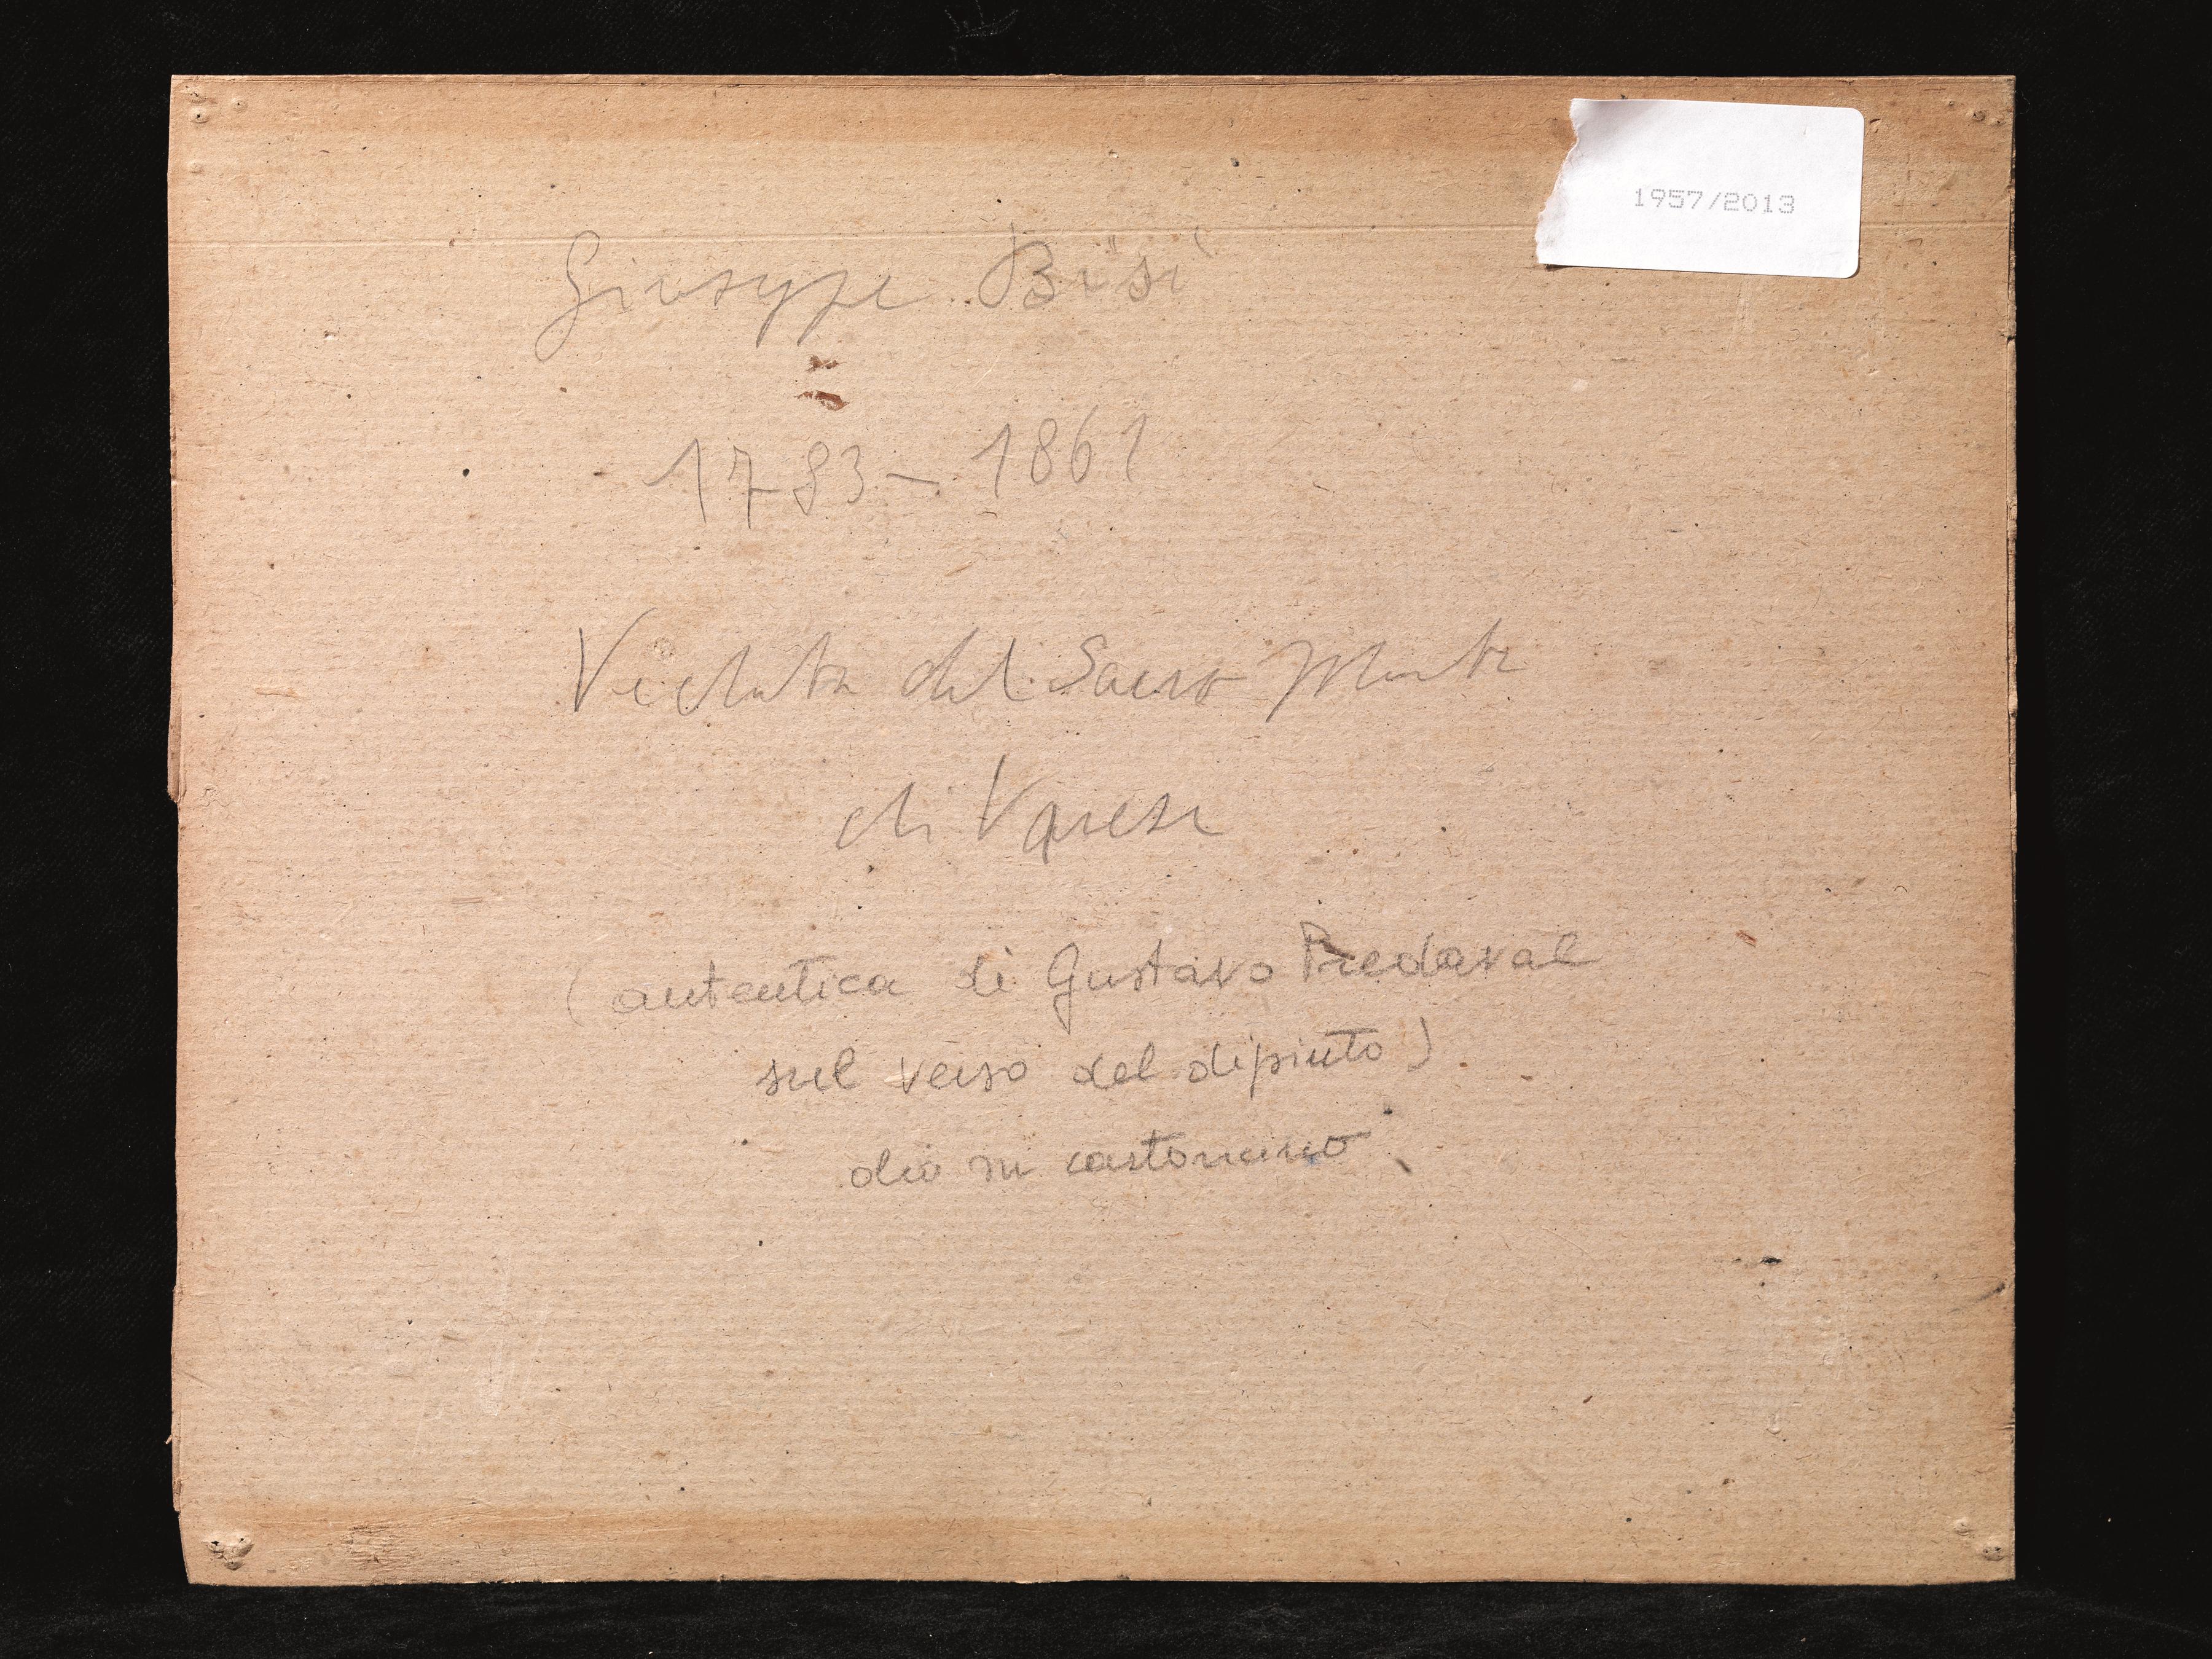 1957/2013
Giuseppe Bisi
1783 - 1861
Veduta del Sacro Monte
di Varese
(autentica di Gustavo Predaval
sul verso del dipinto)
olio su cartoncino